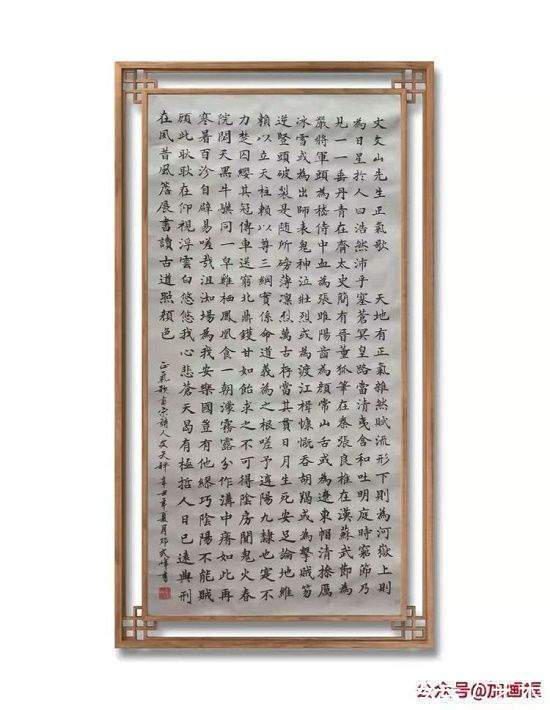 文文山先生正氣歌 天地有正氣雜然賦流形下則為河嶽上則
為日星於人曰浩然沛乎塞蒼冥皇路當清夷含和吐明庭時窮節乃
見一一垂丹青在齊太史簡有晉董狐筆在秦張良椎在漢蘇武節為
嚴將軍頭為嵇侍中血為張睢陽齒為顏常山舌或為遼東帽清操厲
冰雪或為出師表鬼神泣壯烈或為渡江楫慷慨吞胡羯或為擊賊笏
逆豎頭破裂是隨所磅薄凜烈萬古存當其貫日月生死安足論地維
賴以立天柱賴以尊三綱實係命道義為之根嗟予遘陽九隸也寔不
力楚囚纓其冠傳車送窮北鼎鑊甘如飴求之不可得陰房闃鬼火春
院閟天黑牛驥同一皂雞棲鳳凰食一朝濛霧露分作溝中瘠如此再
寒暑百沴自辟易嗟哉沮洳場為我安樂國豈有他繆巧陰陽不能賊
顧此耿耿在仰視浮雲白悠悠我心悲蒼天曷有極哲人日已遠典刑
在夙昔風簷展書讀古道照顏色
正氣歌南宋詩人文天祥 辛丑年夏月邓武書
公众号@加画框